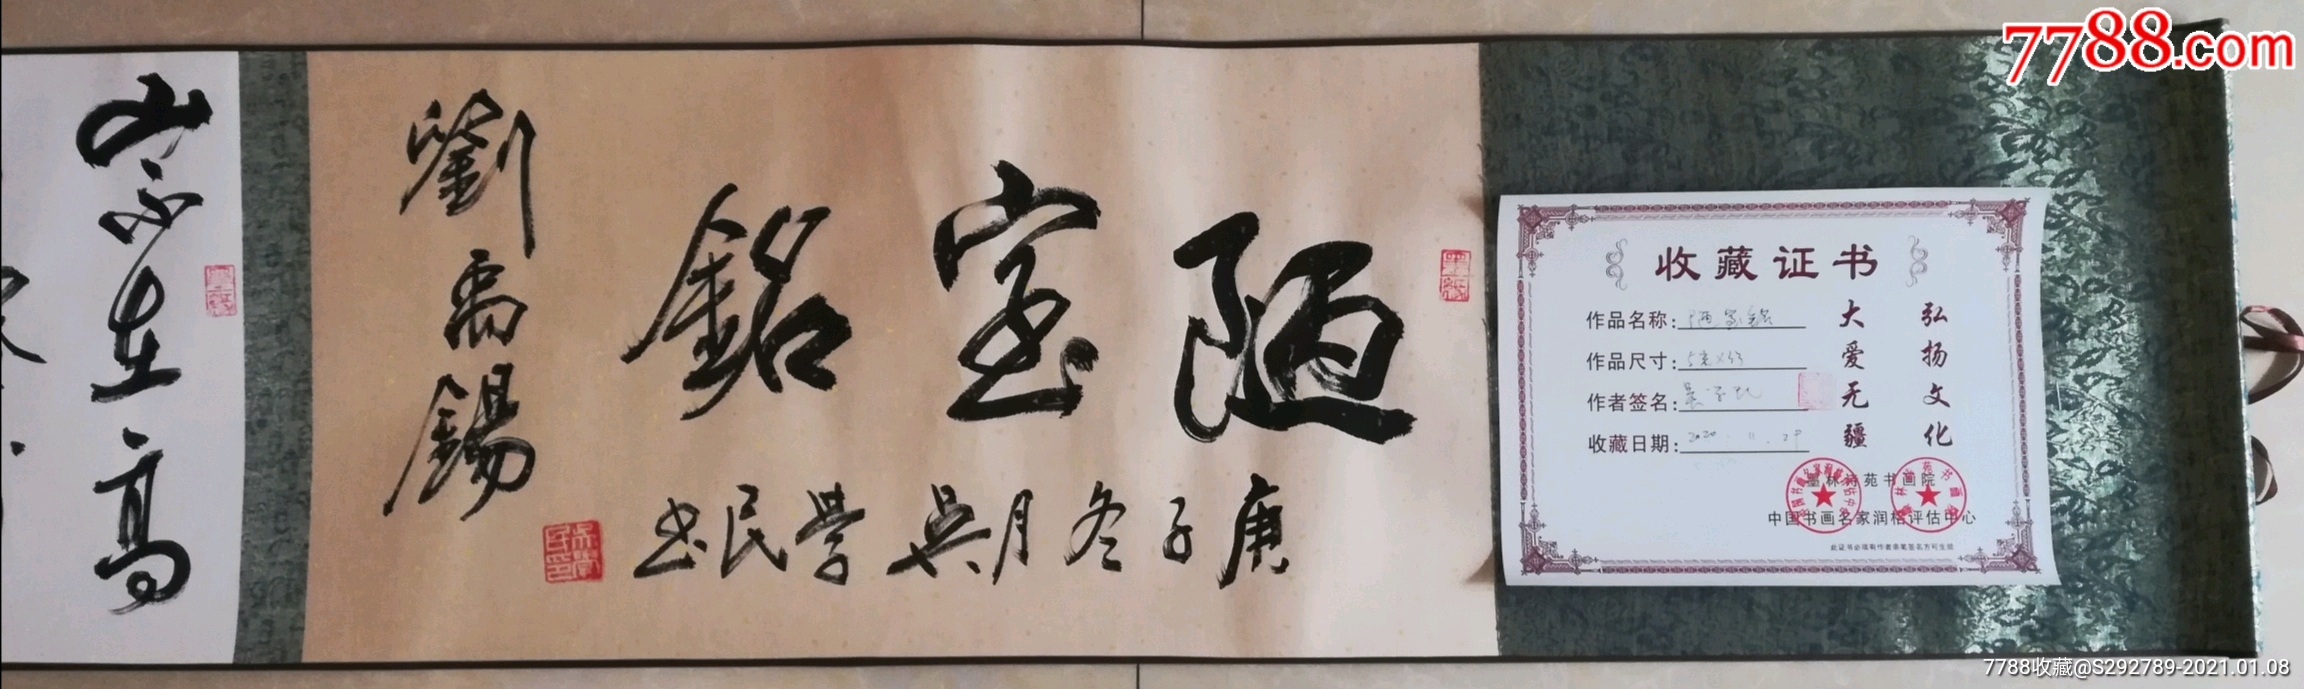 7788.com
陋室銘
劉禹錫
庚子冬月吳學民书
山不在高
收藏证书
作品名称:陋室銘
作品尺寸:
作者签名:吴学民
收藏日期:2020.11.28
弘扬文化
大爱无疆
墨林诗苑书画院
中国书画名家润格评估中心
此证书必须有作者亲笔签名方可生效
7788收藏@S292789-2021.01.08